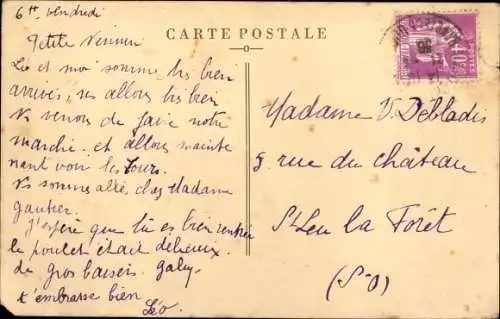 6 h vendredi
CARTE POSTALE
Petite
Léo et moi somme trs bien
arrivés, ns allons trs bien
Ns venons de faire notre
marché. et allons mainte
nant voir les Tours.
Ns somme allé chez Madame
gautier.
J'espère que tu es bien rentrée
le poulet était délicieux.
de gros baisers. Gaby
t'embrasse bien
Léo.
40c
POSTES
Madame V. Débladis
5. rue du château
St Leu la Forêt
(S-O)